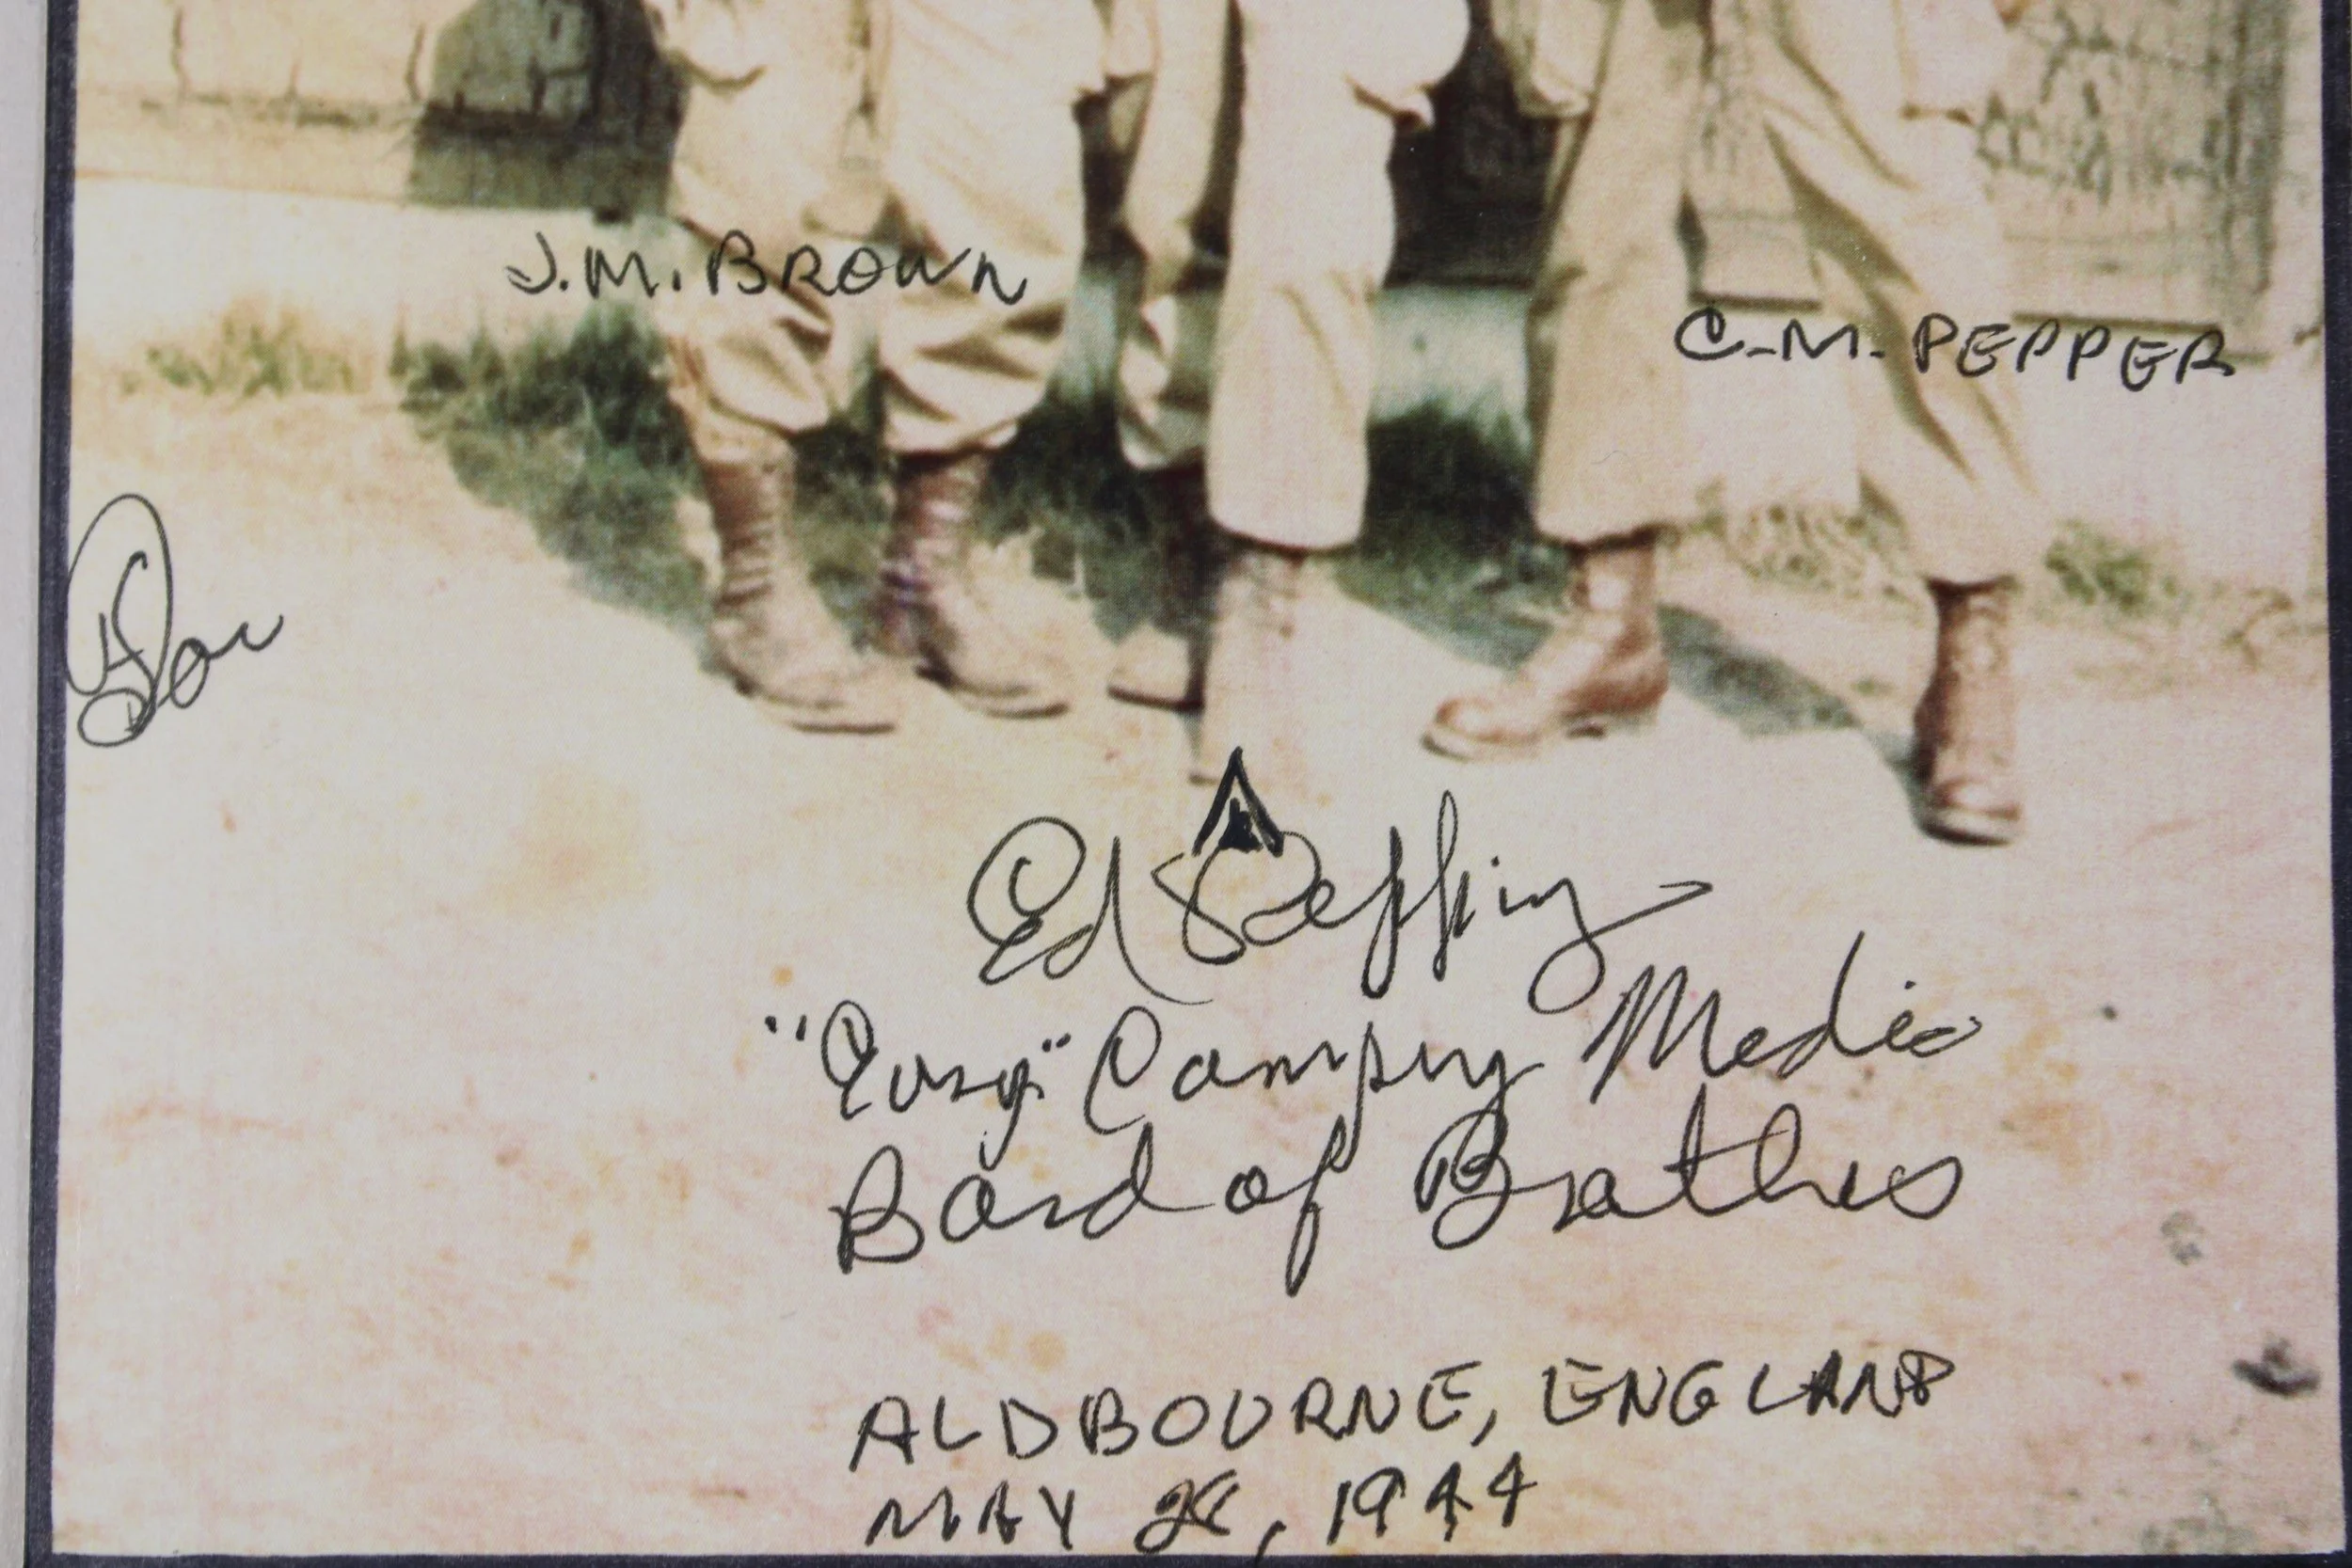 J.M. BROWN
C.M. PEPPER
Ed Pepping
"Easy" Company Medic
Band of Brothers
ALDBOURNE, ENGLAND
MAY 28, 1944